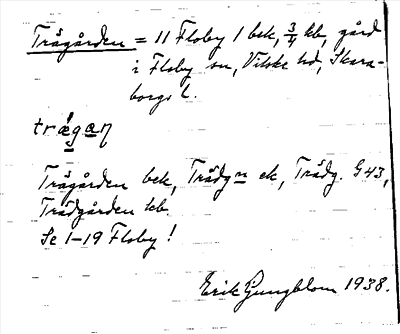 Trägården = 11 Floby 1 bek, 3/4 kb, gård
i Floby sn, Vilske hd, Skara-
borgs l.
trǽgaṇ
Trägården bek, Trädgn ek, Trädg. G 43,
Trädgården kb.
Se 1-19 Floby!
Erik Ljungblom 1938.